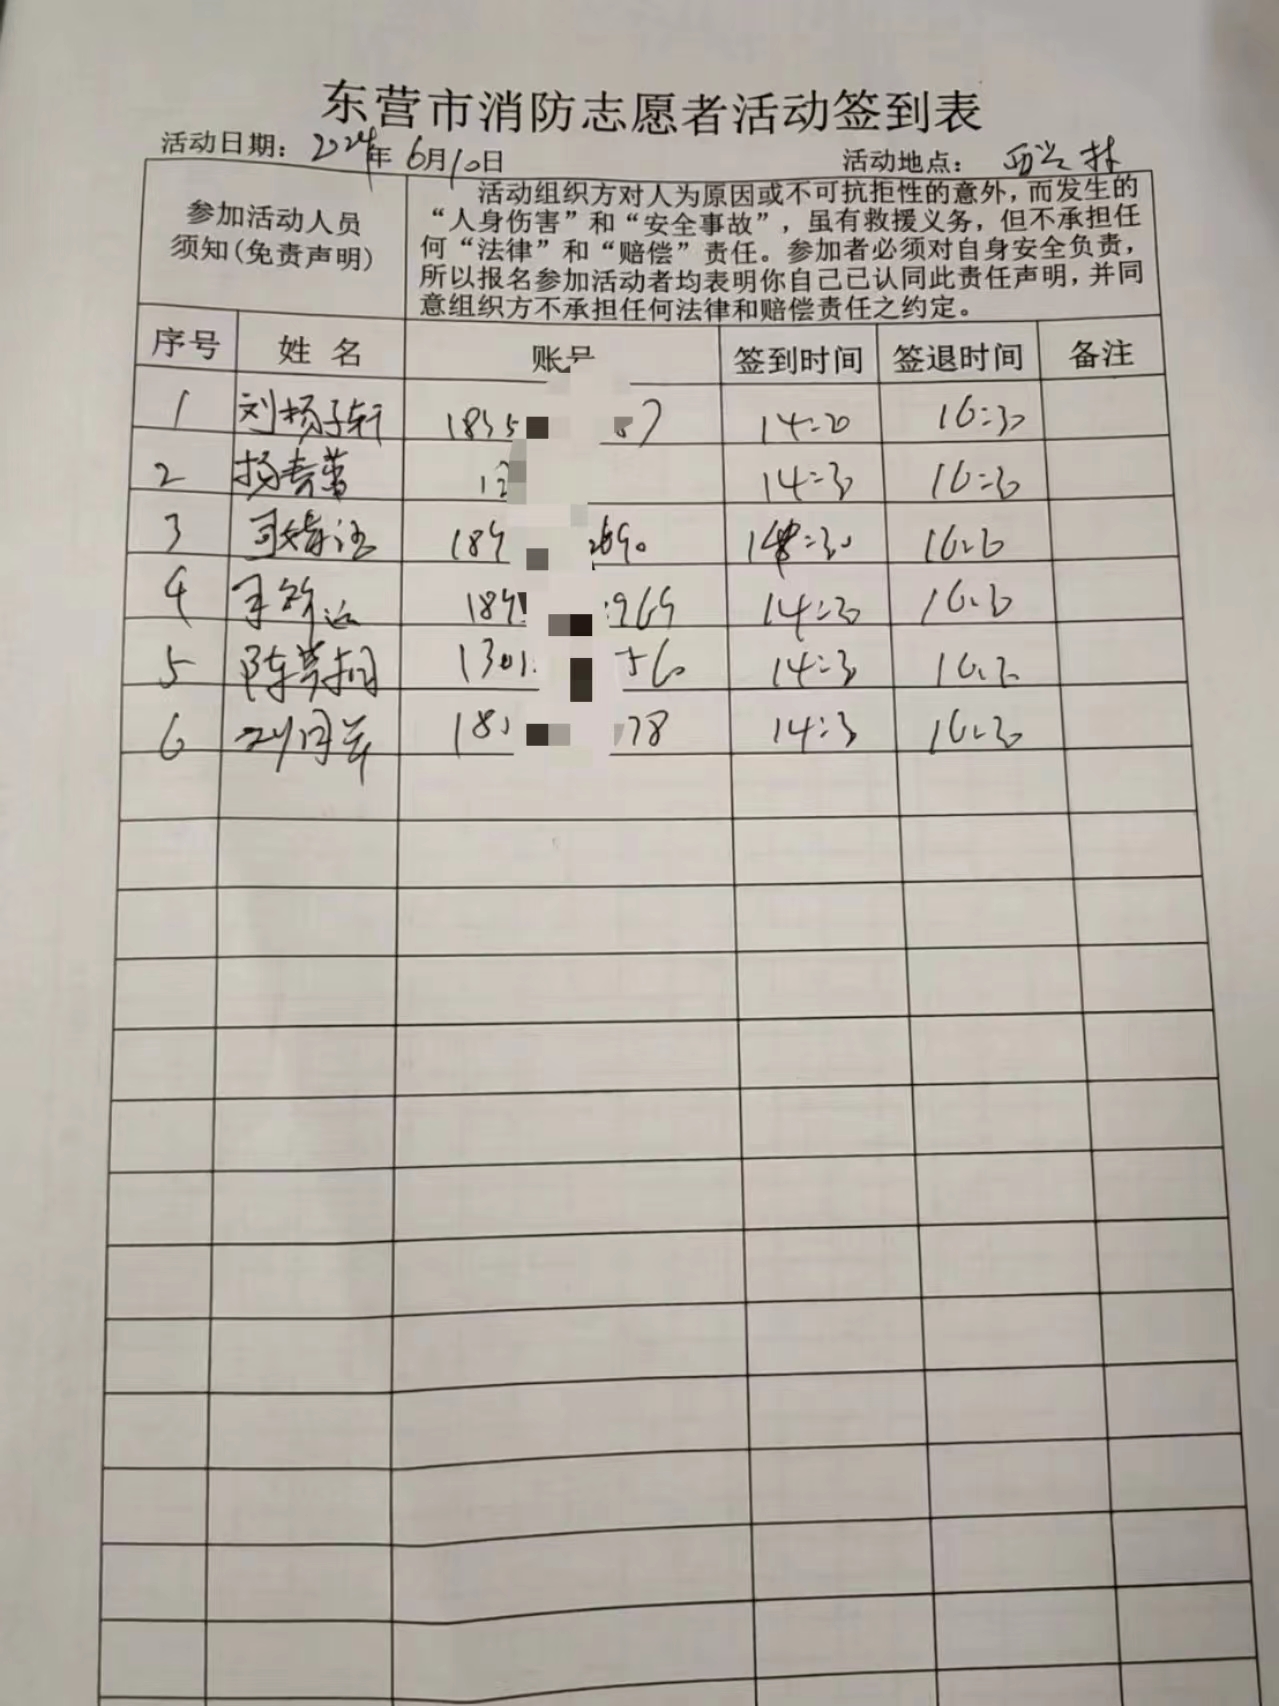 东营市消防志愿者活动签到表
活动日期：2024年6月10日 活动地点：西兴村
参加活动人员
须知(免责声明)
活动组织方对人为原因或不可抗拒性的意外，而发生的
“人身伤害”和“安全事故”，虽有救援义务，但不承担任
何“法律”和“赔偿”责任。参加者必须对自身安全负责，
所以报名参加活动者均表明你自己已认同此责任声明，并同
意组织方不承担任何法律和赔偿责任之约定。
序号 姓名 账号 签到时间 签退时间 备注
1 刘杨子轩 1835 7 14:20 16:30
2 杨春蕾 14:30 16:30
3 189 690 14:30 16:30
4 189 969 14:30 16:30
5 1301 56 14:30 16:30
6 18 78 14:30 16:30